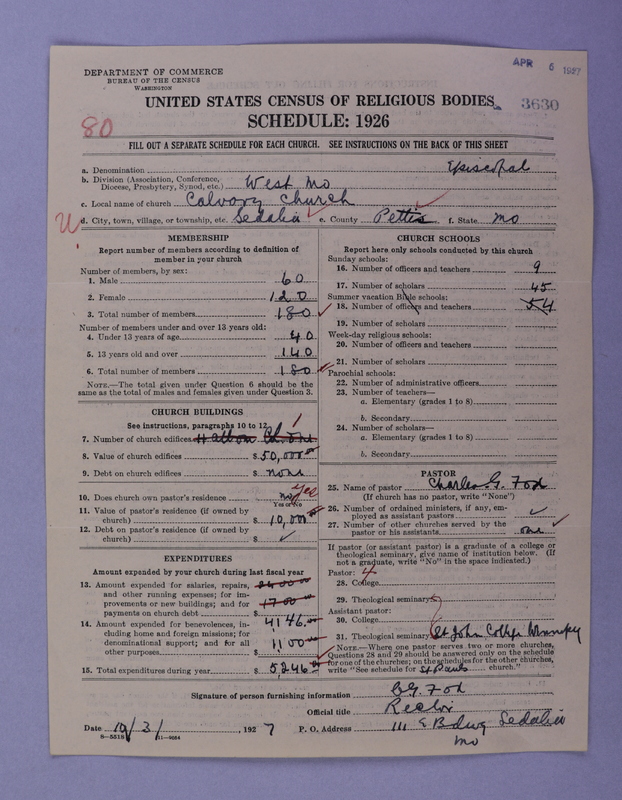 APR 6 1927
DEPARTMENT OF COMMERCE
BUREAU OF THE CENSUS
WASHINGTON
UNITED STATES CENSUS OF RELIGIOUS BODIES
3630
80
SCHEDULE: 1926
FILL OUT A SEPARATE SCHEDULE FOR EACH CHURCH. SEE INSTRUCTIONS ON THE BACK OF THIS SHEET
a. Denomination Episcopal
b. Division (Association, Conference, Diocese, Presbytery, Synod, etc.) West Mo
c. Local name of church Calvary Church
d. City, town, village, or township, etc. Sedalia e. County Pettis f. State Mo
MEMBERSHIP
Report number of members according to definition of
member in your church
Number of members, by sex:
1. Male 60
2. Female 120
3. Total number of members 180
Number of members under and over 13 years old:
4. Under 13 years of age 40
5. 13 years old and over 140
6. Total number of members 180
NOTE.—The total given under Question 6 should be the
same as the total of males and females given under Question 3.
CHURCH BUILDINGS
See instructions, paragraphs 10 to 12
7. Number of church edifices 1
8. Value of church edifices $50,000.00
9. Debt on church edifices $ none
10. Does church own pastor's residence no yes
Yes or No
11. Value of pastor's residence (if owned by
church) $10,000.00
12. Debt on pastor's residence (if owned by
church) $ ✓
EXPENDITURES
Amount expended by your church during last fiscal year
13. Amount expended for salaries, repairs,
and other running expenses; for im-
provements or new buildings; and for
payments on church debt $ 1700.00
4146.00
14. Amount expended for benevolences, in-
cluding home and foreign missions; for
denominational support; and for all
other purposes $ 1100.00
15. Total expenditures during year $ 5,246.00
CHURCH SCHOOLS
Report here only schools conducted by this church
Sunday schools:
16. Number of officers and teachers 9
17. Number of scholars 45
Summer vacation Bible schools:
18. Number of officers and teachers 54
19. Number of scholars
Week-day religious schools:
20. Number of officers and teachers
21. Number of scholars
Parochial schools:
22. Number of administrative officers
23. Number of teachers—
a. Elementary (grades 1 to 8)
b. Secondary
24. Number of scholars—
a. Elementary (grades 1 to 8)
b. Secondary
PASTOR
25. Name of pastor Charles G. Fox
(If church has no pastor, write "None")
26. Number of ordained ministers, if any, em-
ployed as assistant pastors ✓
27. Number of other churches served by the
pastor or his assistants one
If pastor (or assistant pastor) is a graduate of a college or
theological seminary, give name of institution below. (If
not a graduate, write "No" in the space indicated.)
Pastor:
28. College
29. Theological seminary
Assistant pastor:
30. College
31. Theological seminary St John College Winnipeg
NOTE.—Where one pastor serves two or more churches,
Questions 28 and 29 should be answered only on the schedule
for one of the churches; on the schedules for the other churches,
write "See schedule for St Pauls church."
Signature of person furnishing information C. G. Fox
Official title Rector
Date 10/3/, 1927 P. O. Address 111 E Bdwy Sedalia
Mo
8-5518 11-9064